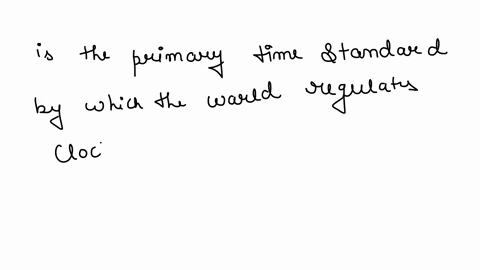 is the primary time standard
by which the warld regulates
Cloc